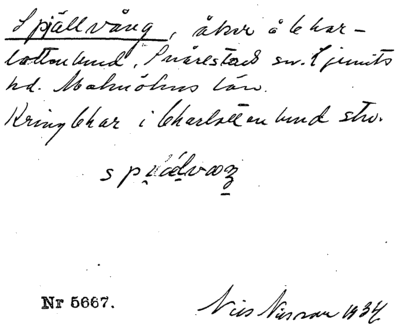 Spjällvång, åker å Char-
lottenlund, Snårestad sn. Ljunits
hd. Malmöhus län.
Kring Char i Charlottenlund stn.
Nr 5667. Nils Nilsson 1934